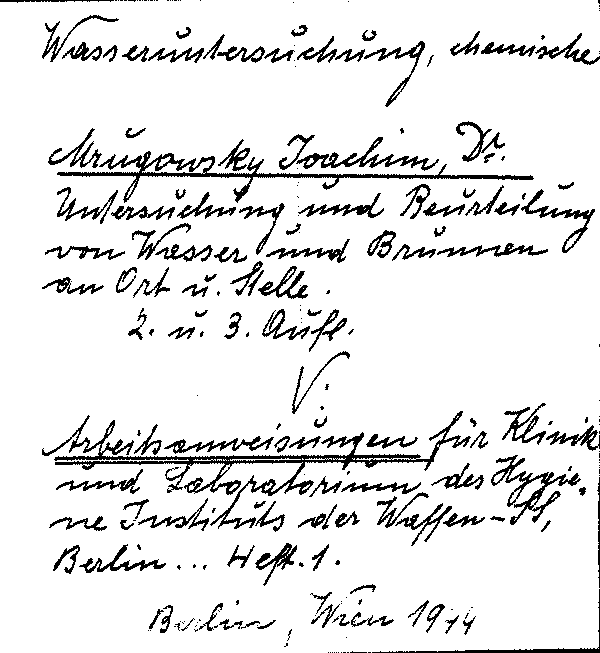 Wasseruntersuchung, chemische
Mrugowsky Joachim, Dr.
Untersuchung und Beurteilung
von Wasser und Brunnen
an Ort u. Stelle.
2. u. 3. Aufl.
V.
Arbeitsanweisungen für Klinik
und Laboratorium des Hygie-
ne Instituts der Waffen-SS,
Berlin... Heft. 1.
Berlin, Wien 1944